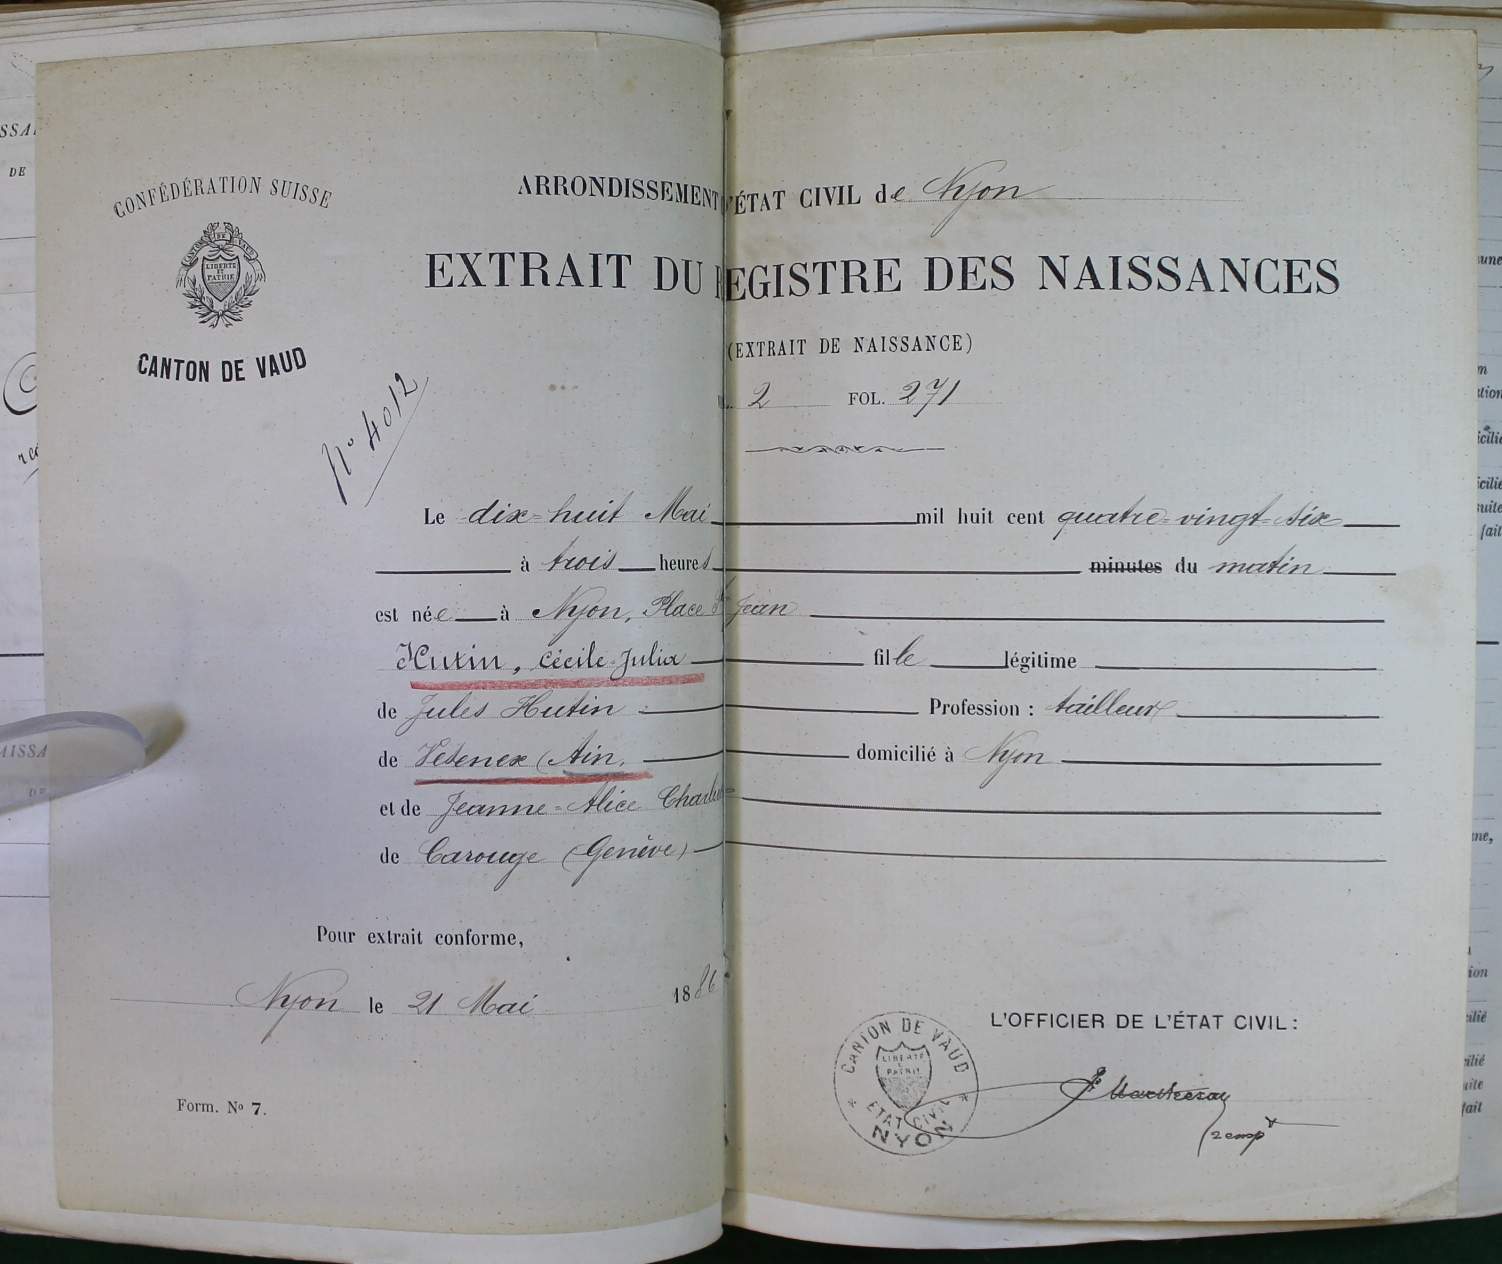 CONFÉDÉRATION SUISSE
CANTON DE VAUD
LIBERTÉ ET PATRIE
CANTON DE VAUD
ARRONDISSEMENT D'ÉTAT CIVIL de Nyon
EXTRAIT DU REGISTRE DES NAISSANCES
(EXTRAIT DE NAISSANCE)
2 FOL. 271
No 4012
Le dix-huit Mai mil huit cent quatre-vingt-six
à trois heures minutes du matin
est née à Nyon, Place St Jean
Hutin, Cécile-Julia fille légitime
de Jules Hutin Profession : tailleur
de Vesenex (Ain. domicilié à Nyon
et de Jeanne-Alice
de Carouge (Genève)
Pour extrait conforme,
Nyon le 21 Mai 1886
L'OFFICIER DE L'ÉTAT CIVIL :
CANTON DE VAUD
LIBERTÉ
PATRIE
ETAT CIVIL
NYON
Form. No 7.